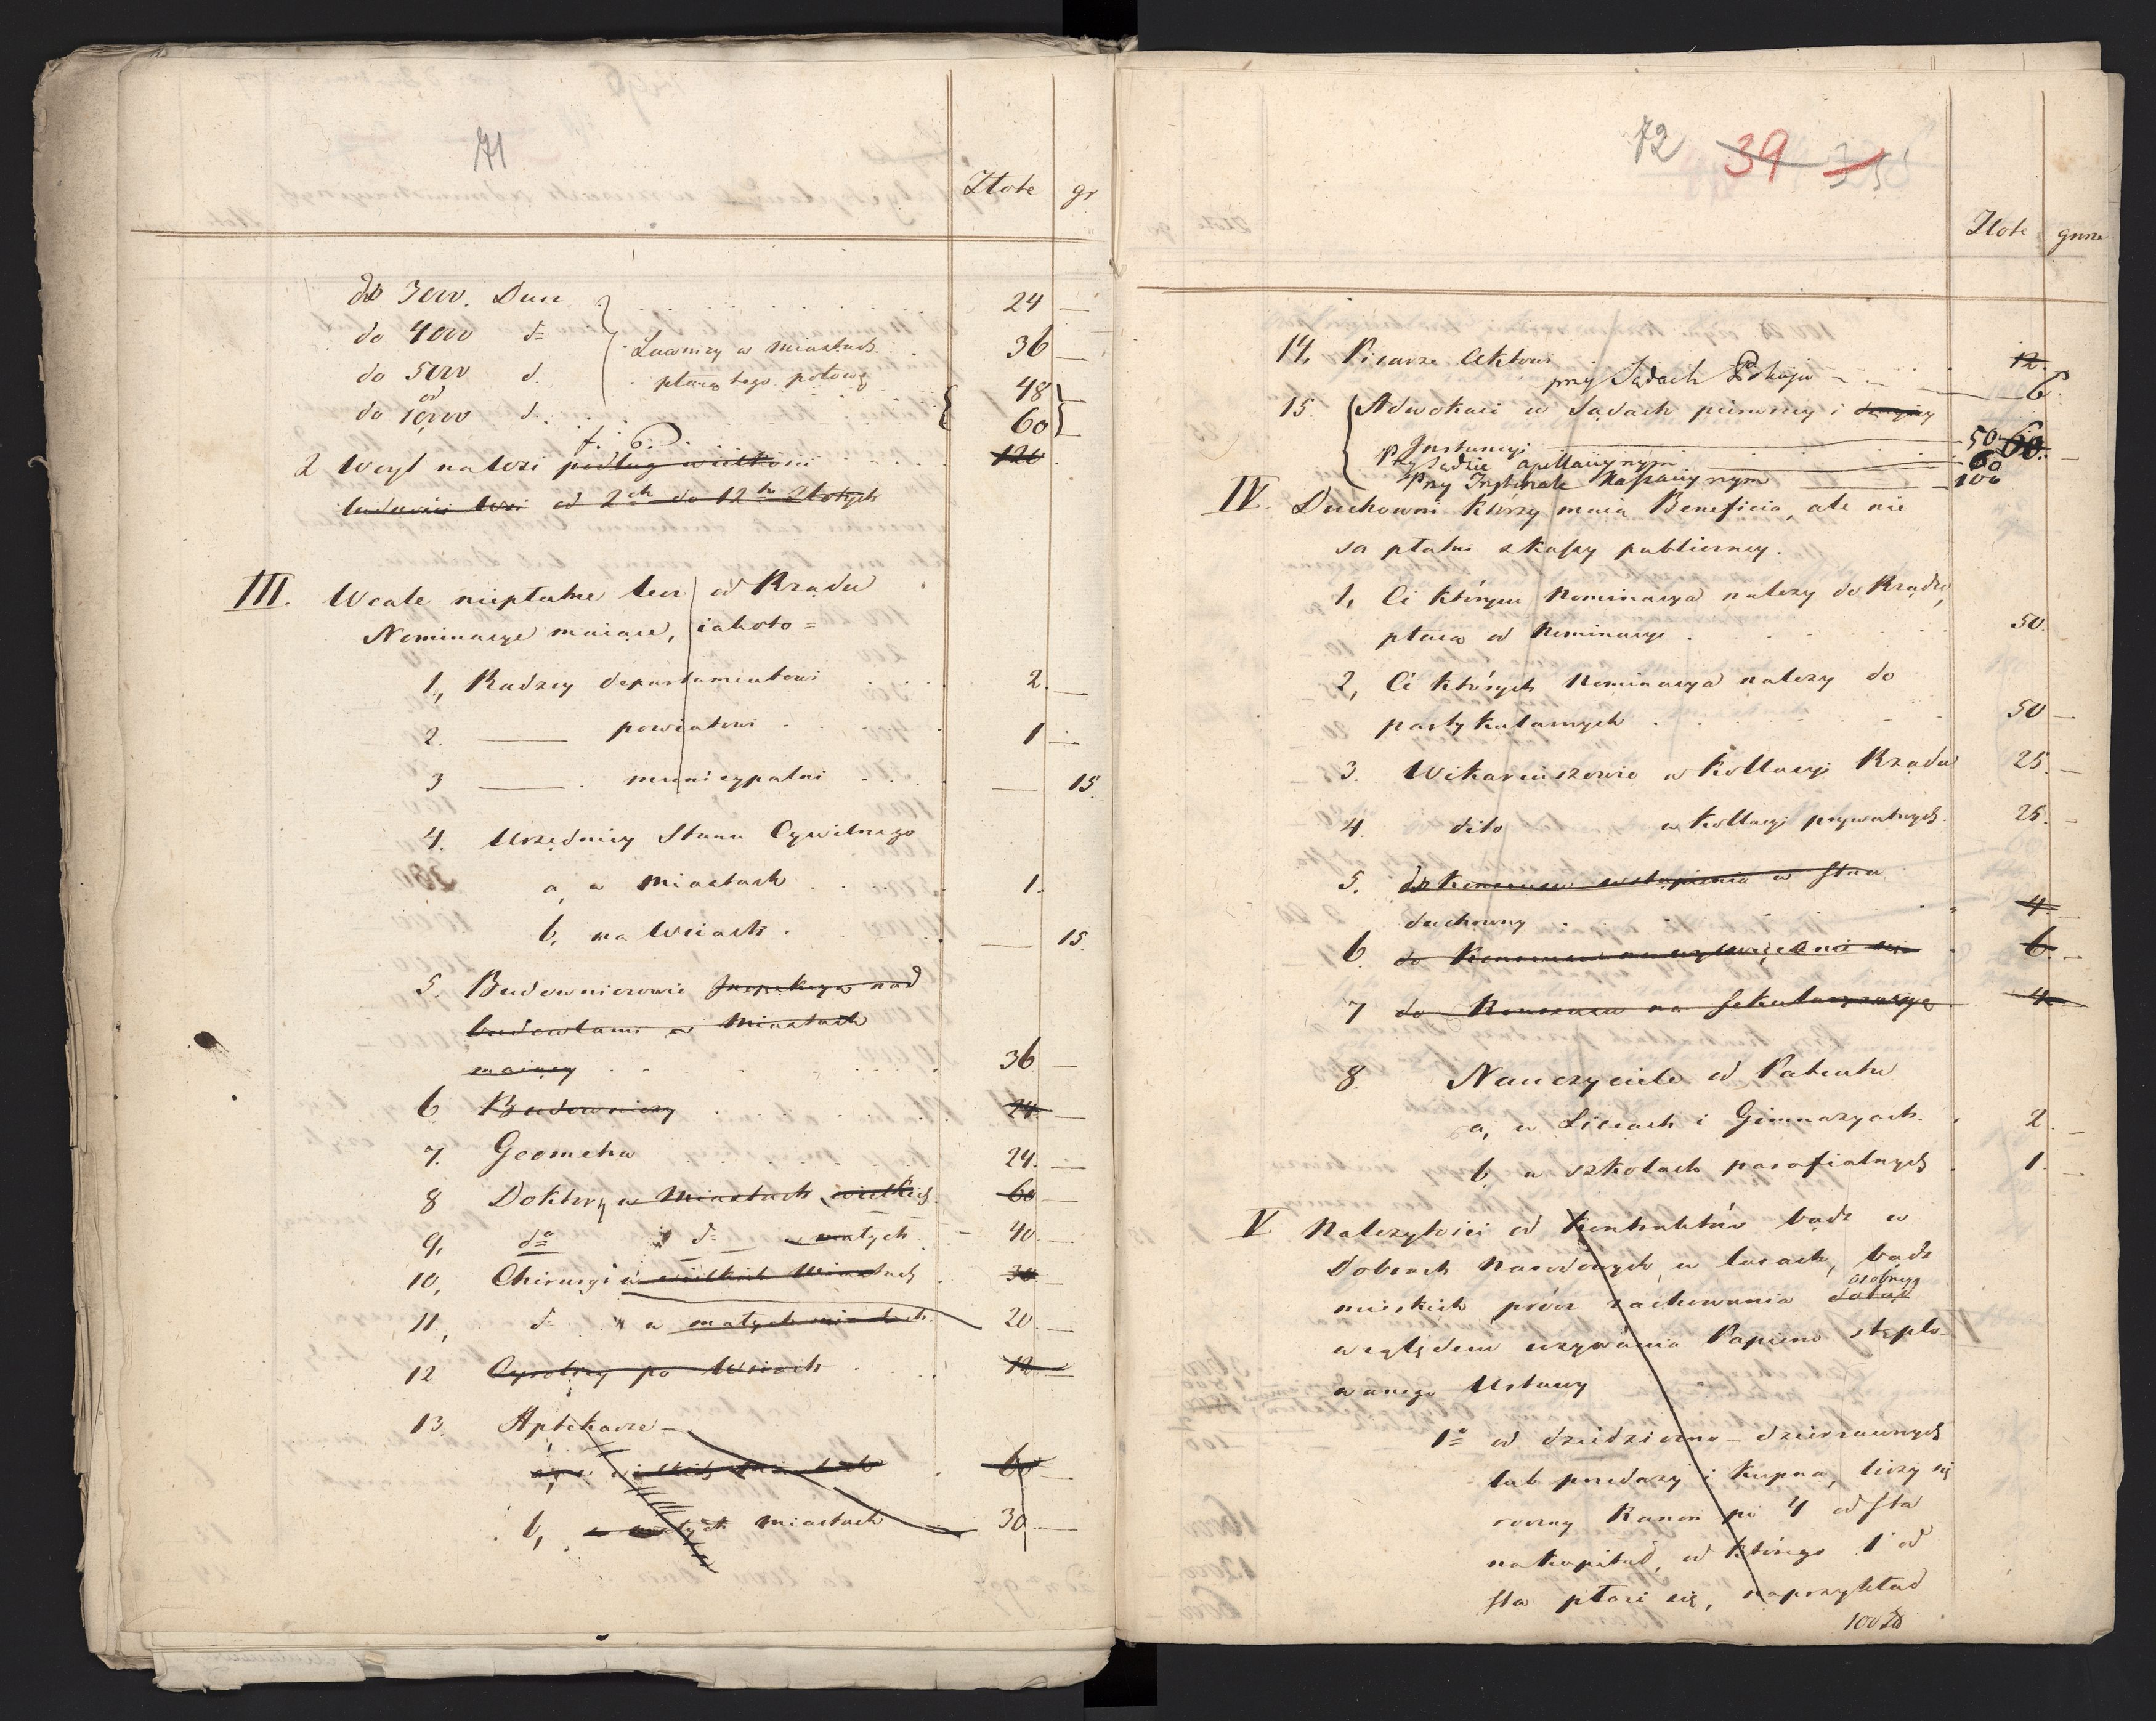 71
Złote gr
do 3000. Dusz 24 —
do 4000 do Ławnicy w miastach 36 —
do 5000 d. płacą tego połowę 48 —
od
do 10,000 d. 60 —
f. 6.
2 Woyt na Wsi podług wielkości 120
ludności Wsi od 2ch do 12tu Złotych
III. Wcale niepłatne lecz od Rządu
Nominacye maiące, iakoto =
1, Radzcy departamentowi 2. —
2. —— powiatowi 1 —
3 —— municypalni — 15.
4. Urzędnicy Stanu Cywilnego
a, w Miastach 1.
b, na Wsiach — 15.
5. Budowniczowie Inspekcyą nad
budowlami w Miastach
maiący 36 —
6 Budowniczy 24 —
7. Geometra 24. —
8 Doktorzy w Miastach wielkich 60 —
9, do d w małych 40 —
10, Chirurgi w wielkich Miastach 30 —
11, d w małych miastach 20 —
12 Cyrulicy po Wsiach 12 —
13. Aptekarze —
a, w wielkich Miastach 60 —
b, w małych miastach 30 —
72 39 35
Złote grosze
14, Pisarze Aktowi 12.
przy Sądach Pokoju — 6.
15. Adwokaci w Sądach pierwszey i drugiey
Instancyi 50 60. —
przy Sądzie apellacyinym 60
Przy Trybunale Kassacyinym 100
IV. Duchowni którzy maią Beneficia, ale nie
są płatni z kassy publiczney.
1, Ci którym Nominacya należy do Rządu,
płacą od Nominacyi 50.
2, Ci których Nominacya należy do
partykularnych 50 —
3. Wikaryuszowie w kollacyi Rządu 25. —
4. dito w kollacyi prywatnych. 25. —
5. do konsensu wstąpienia w stan
duchowny 4. —
6. do Konsensu na wyświęcenie się 6. —
7 do Konsensu na sekularyzacyę 4. —
8. Nauczyciele od Patentu
a, w Liceach i Gimnazyach. 2. —
b, w szkołach parafialnych 1. —
V Należytości od Kontraktów bądź w
Dobrach Narodowych, w lasach, bądź
osobney
mieyskich prócz zachowania dotąd
względem używania Papieru stęplo-
wanego Ustawy
1o od dzeidziczno — dzierzawnych
lub przedaży i kupna, liczy się
roczny Kanon po 4 od sta
na kapitał, od którego 1 od
sta płaci się, naprzykład
100 Zł